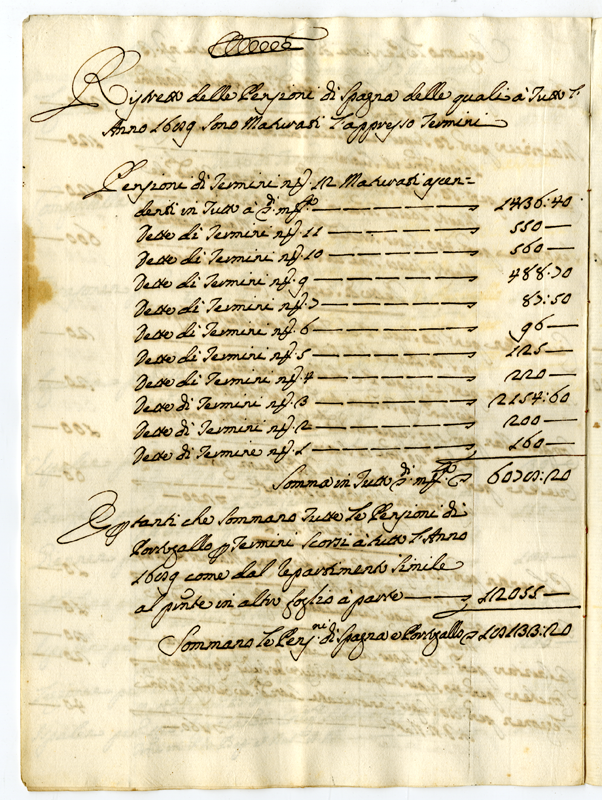 Ristretto delle Pensioni di Spagna delle quali à tutto l'
Anno 1689 sono Maturati l'appresso Termini
Pensioni di Termini nº. 12 Maturati ascen-
denti in tutto à di mta 1436:40
Dette di Termini nº. 11 550
Dette di Termini nº. 10 560
Dette di Termini nº. 9 488:70
Dette di Termini nº. 7 87:50
Dette di Termini nº. 6 96
Dette di Termini nº. 5 125
Dette di Termini nº. 4 220
Dette di Termini nº. 3 2154:60
Dette di Termini nº. 2 200
Dette di Termine nº. 1 160
Somma in tutto di mta 6078:20
E tanti che sommano tutte le Pensioni di
Portogallo p Termini scorsi à tutto l'Anno
1689 come dal repartimento simile
al pnte in altro foglio à parte 12055
Sommano le Pensni di Spagna e Portogallo 18133:20